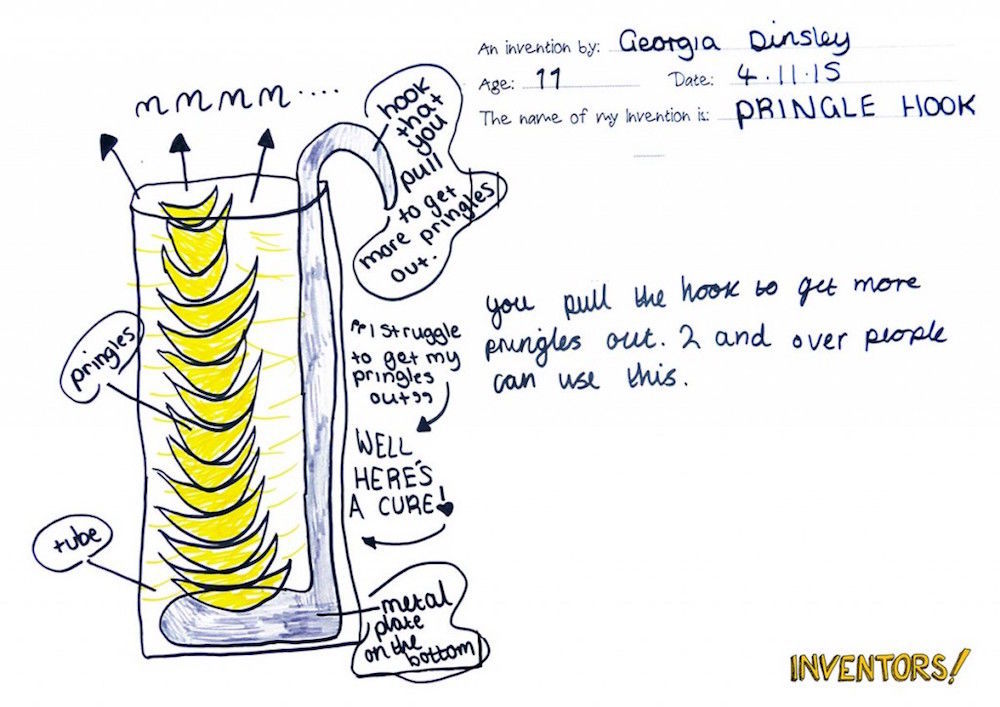 An invention by: Georgia Dinsley
Age: 11 Date: 4.11.15
The name of my Invention is: PRINGLE HOOK
mmmm....
hook
that
you
pull
to get
more pringles
out.
pringles
"I struggle
to get my
pringles
out"
WELL
HERE'S
A CURE!
you pull the hook to get more
pringles out. 2 and over people
can use this.
tube
metal
plate
on the
bottom
INVENTORS!